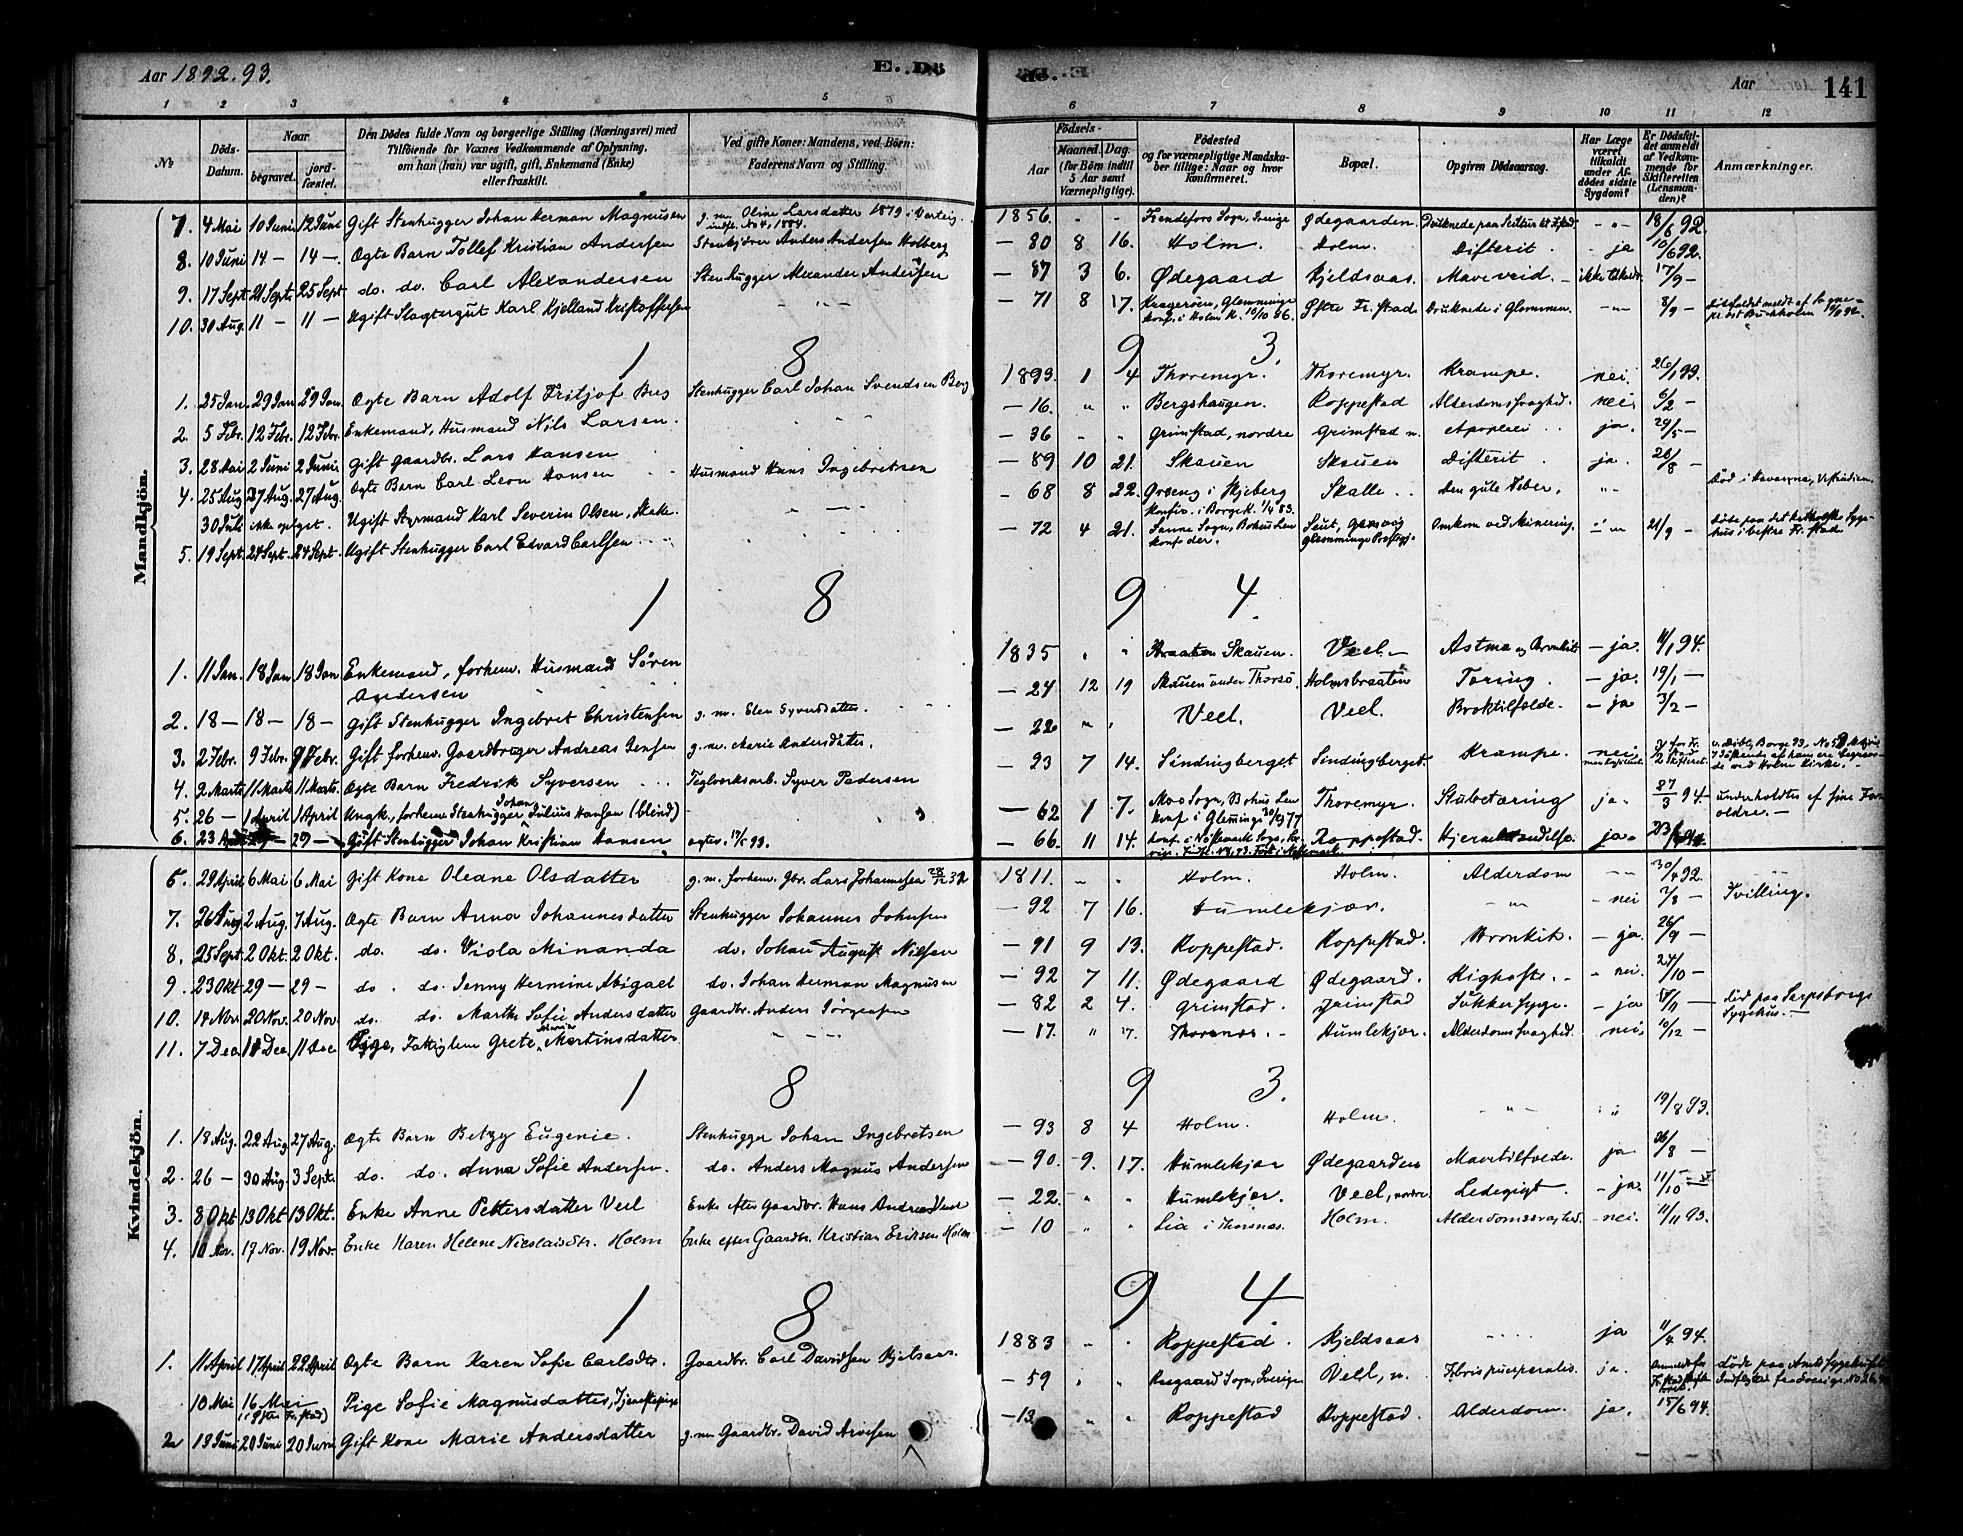 Aar 1892.93.
E. Dö
de. E.
Aar 141
1 2 3 4 5 6 7 8 9 10 11 12
No
Döds-Datum.
Naar
begravet.
jord-fæstet.
Den Dödes fulde Navn og borgerlige Stilling (Næringsvei) med
Tilföiende for Voxnes Vedkommende af Oplysning,
om han (hun) var ugift, gift, Enkemand (Enke)
eller fraskilt.
Ved gifte Koner: Mandens, ved Börn:
Faderens Navn og Stilling.
Födsels-
Aar
Maaned. Dag.
(for Börn indtil
5 Aar samt
Værnepligtige).
Födested
og for værnepligtige Mandska-
ber tillige: Naar og hvor
konfirmeret.
Bopæl.
Opgiven Dödsaarsag.
Har Læge
været
tilkaldt
under Af-
dödes sidste
Sygdom?
Er Dödsfal-
det anmeldt
af Vedkom-
mende for
Skifteretten
(Lensman-
den)?
Anmærkninger.
Mandkjön.
7. 4 Mai 10 Juni 12 Juni Gift Stenhugger Johan Herman Magnusen g. m. Oline Larsdatter 1879 i Varteig. indfl. No 4, 1884. 1856. " - Ødegaarden. 18/6 92.
8. 10 Juni 14 — 14 —. Ægte Barn Tollef Kristian Andersen Stenkjører Anders Andersen Holberg — 80 8 16. Holm. Holm. Difterit - ja 10/6 92.
9. 17 Sept. 21 Sept. 25 Sept. do. do. Carl Alexandersen Stenhugger Alexander Andersen — 87 3 6. Ødegaard Kjeldsaas. Maveveid. — ikke tilkaldt 17/9 —
10. 30 Aug. 11 — 11 — Ugift Slagtergut Karl Kjelland Kristoffersen — 71 8 17. Kragerøen, Glemminge konf. i Holm K. 10/10 86. Østre Fr.stad druknede i Glommen. 8/9 —
1 8 9 3.
1. 25 Jan. 29 Jan 29 Jan. Ægte Barn Adolf Fritjof Berg Stenhugger Carl Johan Svendsen Berg 1893. 1 4 Thoremyr. Thoremyr. Krampe. nei. 26/1 93.
2. 5 Febr. 12 Febr. 12 Febr. Enkemand, Husmand Nils Larsen. — 16. " " Bergshaugen. Roppestad Alderdomssvaghed. nei. 6/2 —
3. 28 Mai 2 Juni 2 Juni. Gift Gaardbr. Lars Hansen — 36 " " Grimstad, nordre Grimstad n. Apoplexi ja. 29/5 —
4. 25 Aug 27 Aug. 27 Aug. Ægte Barn Carl Leon Hansen Husmand Hans Ingebretsen — 89 10 21. Skauen Skauen Difterit ja. 26/8 —
30 Juli ikke opget. Ugift Styrmand Karl Severin Olsen, Skalle. — 68 8 22. i Skjeberg konfir. i Borge K. 1/4 83. Skalle. Den gule Feber. Død i Havanna, Vestindien.
5. 19 Sept. 24 Sept. 24 Sept. Ugift Stenhugger Carl Edvard Carlsen — 72 4 21. Sanne Sogn, Bohus Len konf der. Seut, Glemminge Præstgj. Omkom ved Minering. 21/9 — døde paa det katholske Syge-hus i Fr.stad.
1 8 9 4.
1. 11 Jan. 18 Jan 18 Jan. Enkemand, forhenv. Husmand Sören Andersen 1835 " " Skauen. Veel. — Astma og Bronkit — ja. 11/1 94.
2. 18 — 18 — 18 — Gift Stenhugger Ingebret Christensen g. m. Elen Syversdatter. — 24 12 19 Skauen under Thorsø. Holmsbraaten Tæring. — ja. 19/1 —
3. 2 Febr. 9 Febr. 9 Febr. Gift forhenv. Gaardbruger Andreas Jensen g. m. Marie Andersdatter. — 22 " " Veel. Veel. Broktilfælde. — ja 3/2 —
4. 2 Marts 11 Marts 11 Marts. Ægte Barn Fredrik Syversen Teglverksarb. Syver Pedersen — 93 7 14. Sindingberget Sindingberget. Krampe. nei
5. 26 — 1 April 1 April Ungk., forhenv. Stenhugger Johan Julius Hansen (blind) — 62 1 7. Moo Sogn, Bohus Len konf i Glemminge 30/9 77 Thoremyr. Stubetæring ja. 27/3 94. underholdtes af sine Foræ-ldre. —
6. 23 29 — Gift Stenhugger Johan Kristian Hansen — 66 11 14. Roppestad. ja.
Kvindekjön.
6. 29 April 6 Mai 6 Mai Gift Kone Oleane Olsdatter g. m. forhenv. Gbr. Lars Johannesen 1811. Holm. Holm. Alderdom 30/4 92.
7. 26 Aug 2 Aug. 7 Aug. Ægte Barn Anna Johannesdatter Stenhugger Johannes Johnsen — 92 7 16. Humlekjær. — nei Tvilling.
8. 25 Sept. 2 Okt. 2 Okt. do. do. Viola Minanda do. Johan August Nilsen — 91 9 13. Roppestad. Roppestad. Bronkit. — ja 26/9 —
9. 23 Okt. 29 — 29 — do. do. Jenny Hermine Abigael do. Johan Herman Magnusen — 92 7 11. Ødegaard Ødegaard. Kighoste. — nei. 24/10 —
10. 14 Nbr. 20 Nov. 20 Nov. do. do. Marthe Sofie Andersdatter Gaardbr. Anders Jörgensen — 82 2 4. Grimstad. Grimstad Sukkersyge. — ja død paa Sarpsborgs Sygehus. —
11. 7 Dec 11 Dec. 11 Dec Pige, Fattiglem Grete Martinsdatter — 17. " " Thorsnæs. — Humlekjær. Alderdomssvaghed. nei. 10/12 —
1 8 9 3.
1. 18 Aug. 22 Aug. 27 Aug. Ægte Barn Betzy Eugenie. Stenhugger Johan Ingebretsen — 93 8 4 Holm. Holm. 19/8 93.
2. 26 — 30 Aug. 3 Sept. do. do. Anna Sofie Andersen. do. Anders Magnus Andersen — 90. 9. 17. Humlekjær Ødegaarden Mavetilfælde. ja 26/8 —
3. 8 Okt 13 Okt 13 Okt. Enke Anne Pettersdatter Veel Enke efter Gaardbr. Hans Andreas Veel — 22. " " Humlekjær. Veel, nordre. Ledegigt. — ja. 11/10 —
4. 10 Nov. 17 Nov. 19 Nov. Enke Karen Helene Nicolaisdtr. Holm Enke efter Gaardbr. Kristian Eriksen Holm — 10 " " Lia i Thorsnæs. Holm. Alderdomssvaghed. — nei. 11/11 93.
1 8 9 4
1. 11 April 17 April 22 April Ægte Barn Karen Sofie Carlsdtr. Gaardbr. Carl Davidsen Kjelsaas. 1883 " " Roppestad. Kjeldsaas ja 11/4 94.
10 Mai 16 Mai Pige Sofie Magnusdatter, Tjenestepige — 59 " " Sogn, Sverige Veel, n. Febris puerperalis. ja. døde paa Amtssygehuset
2 13 Juni 20 Juni 20 Juni Gift Kone Marie Andersdatter g. m. Gaardbr. David Arvesen — 13. " " Roppestad Roppestad. Alderdom. ja. 15/6 94.